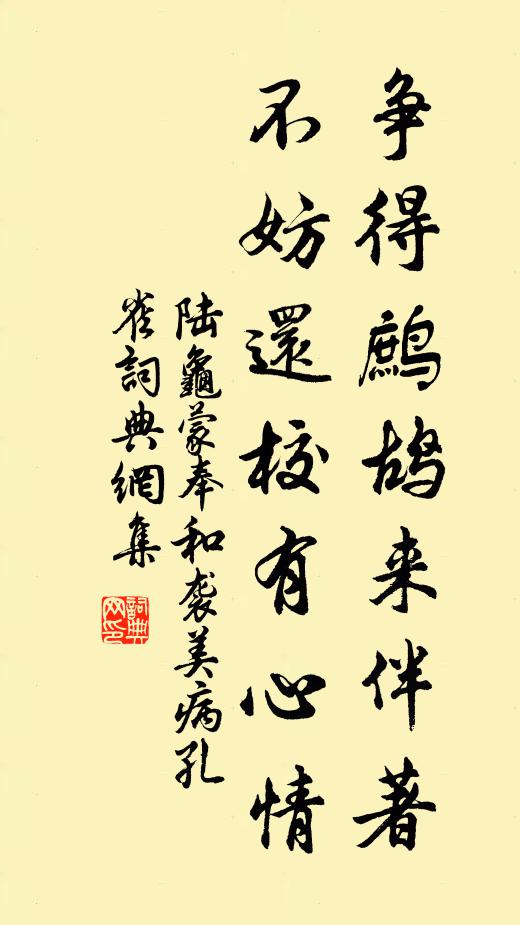 争得鹧鸪来伴著
不妨還校有心情
陆龜蒙奉和袭美病孔
雀詞典網集
詞典网印